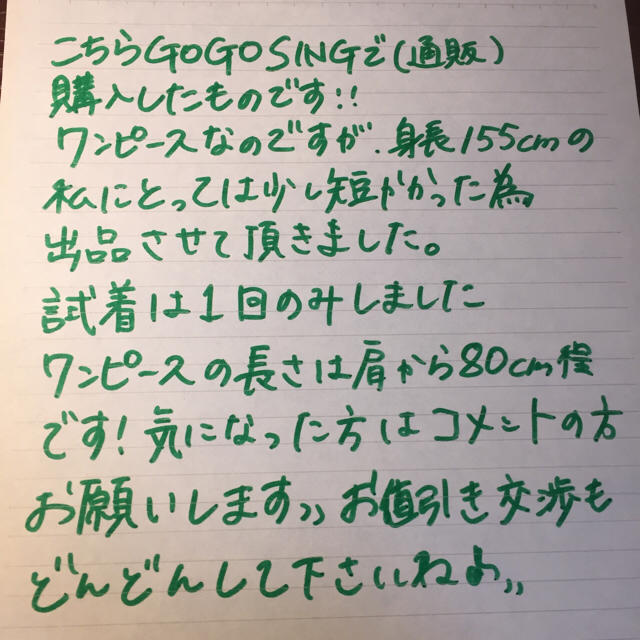 こちらGOGOSINGで(通販)
購入したものです!!
ワンピースなのですが、身長155cmの
私にとっては少し短かかった為
出品させて頂きました。
試着は1回のみしました
ワンピースの長さは肩から80cm程
です!気になった方はコメントの方
お願いします,, お値引き交渉も
どんどんして下さいねお,,